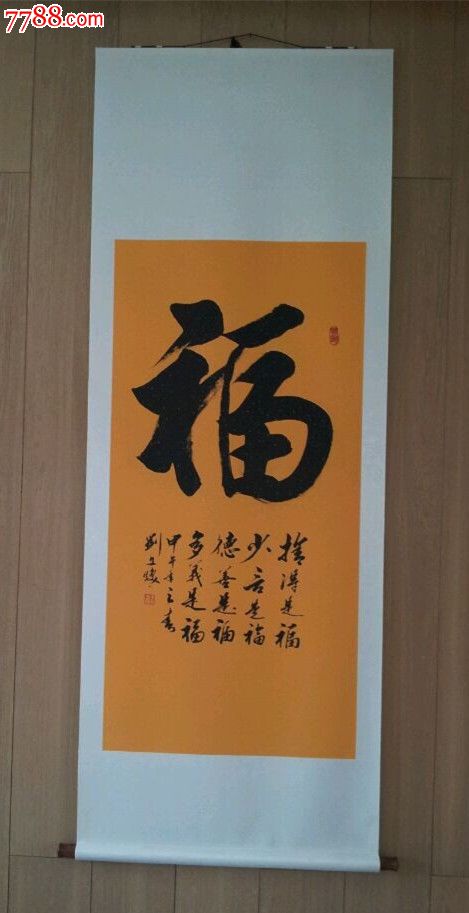 7788.com
福
捨得是福
少言是福
德善是福
多義是福
甲午年立春